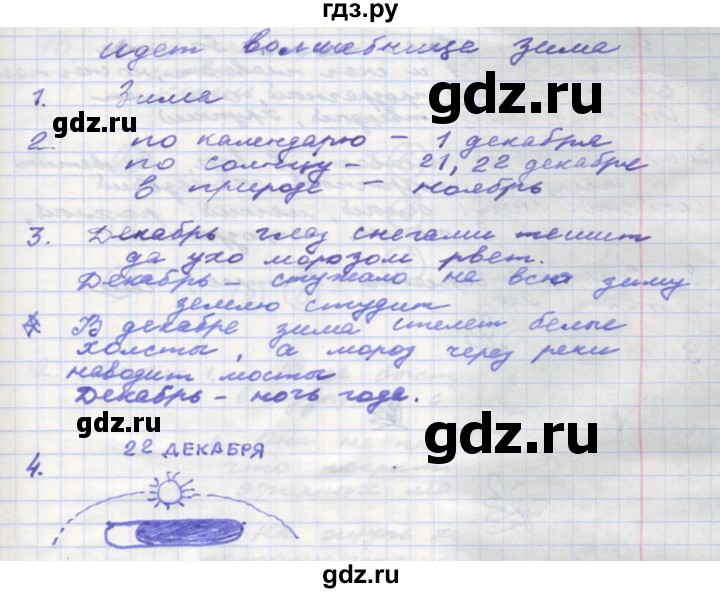 гдз.ру
идет волшебница зима
gdz.ru
1. Зима
gdz.ru
2. по календарю – 1 декабря
по солнцу – 21, 22 декабря
в природе – ноябрь
3. Декабрь глаз снегами тешит
да ухо морозом рвет.
Декабрь – стужало на всю зиму
землю студит
В декабре зима стелет белые
холсты, а мороз через реки
наводит мосты
Декабрь – ночь года.
gdz.ru
gdz.ru
4. 22 ДЕКАБРЯ
gdz.ru